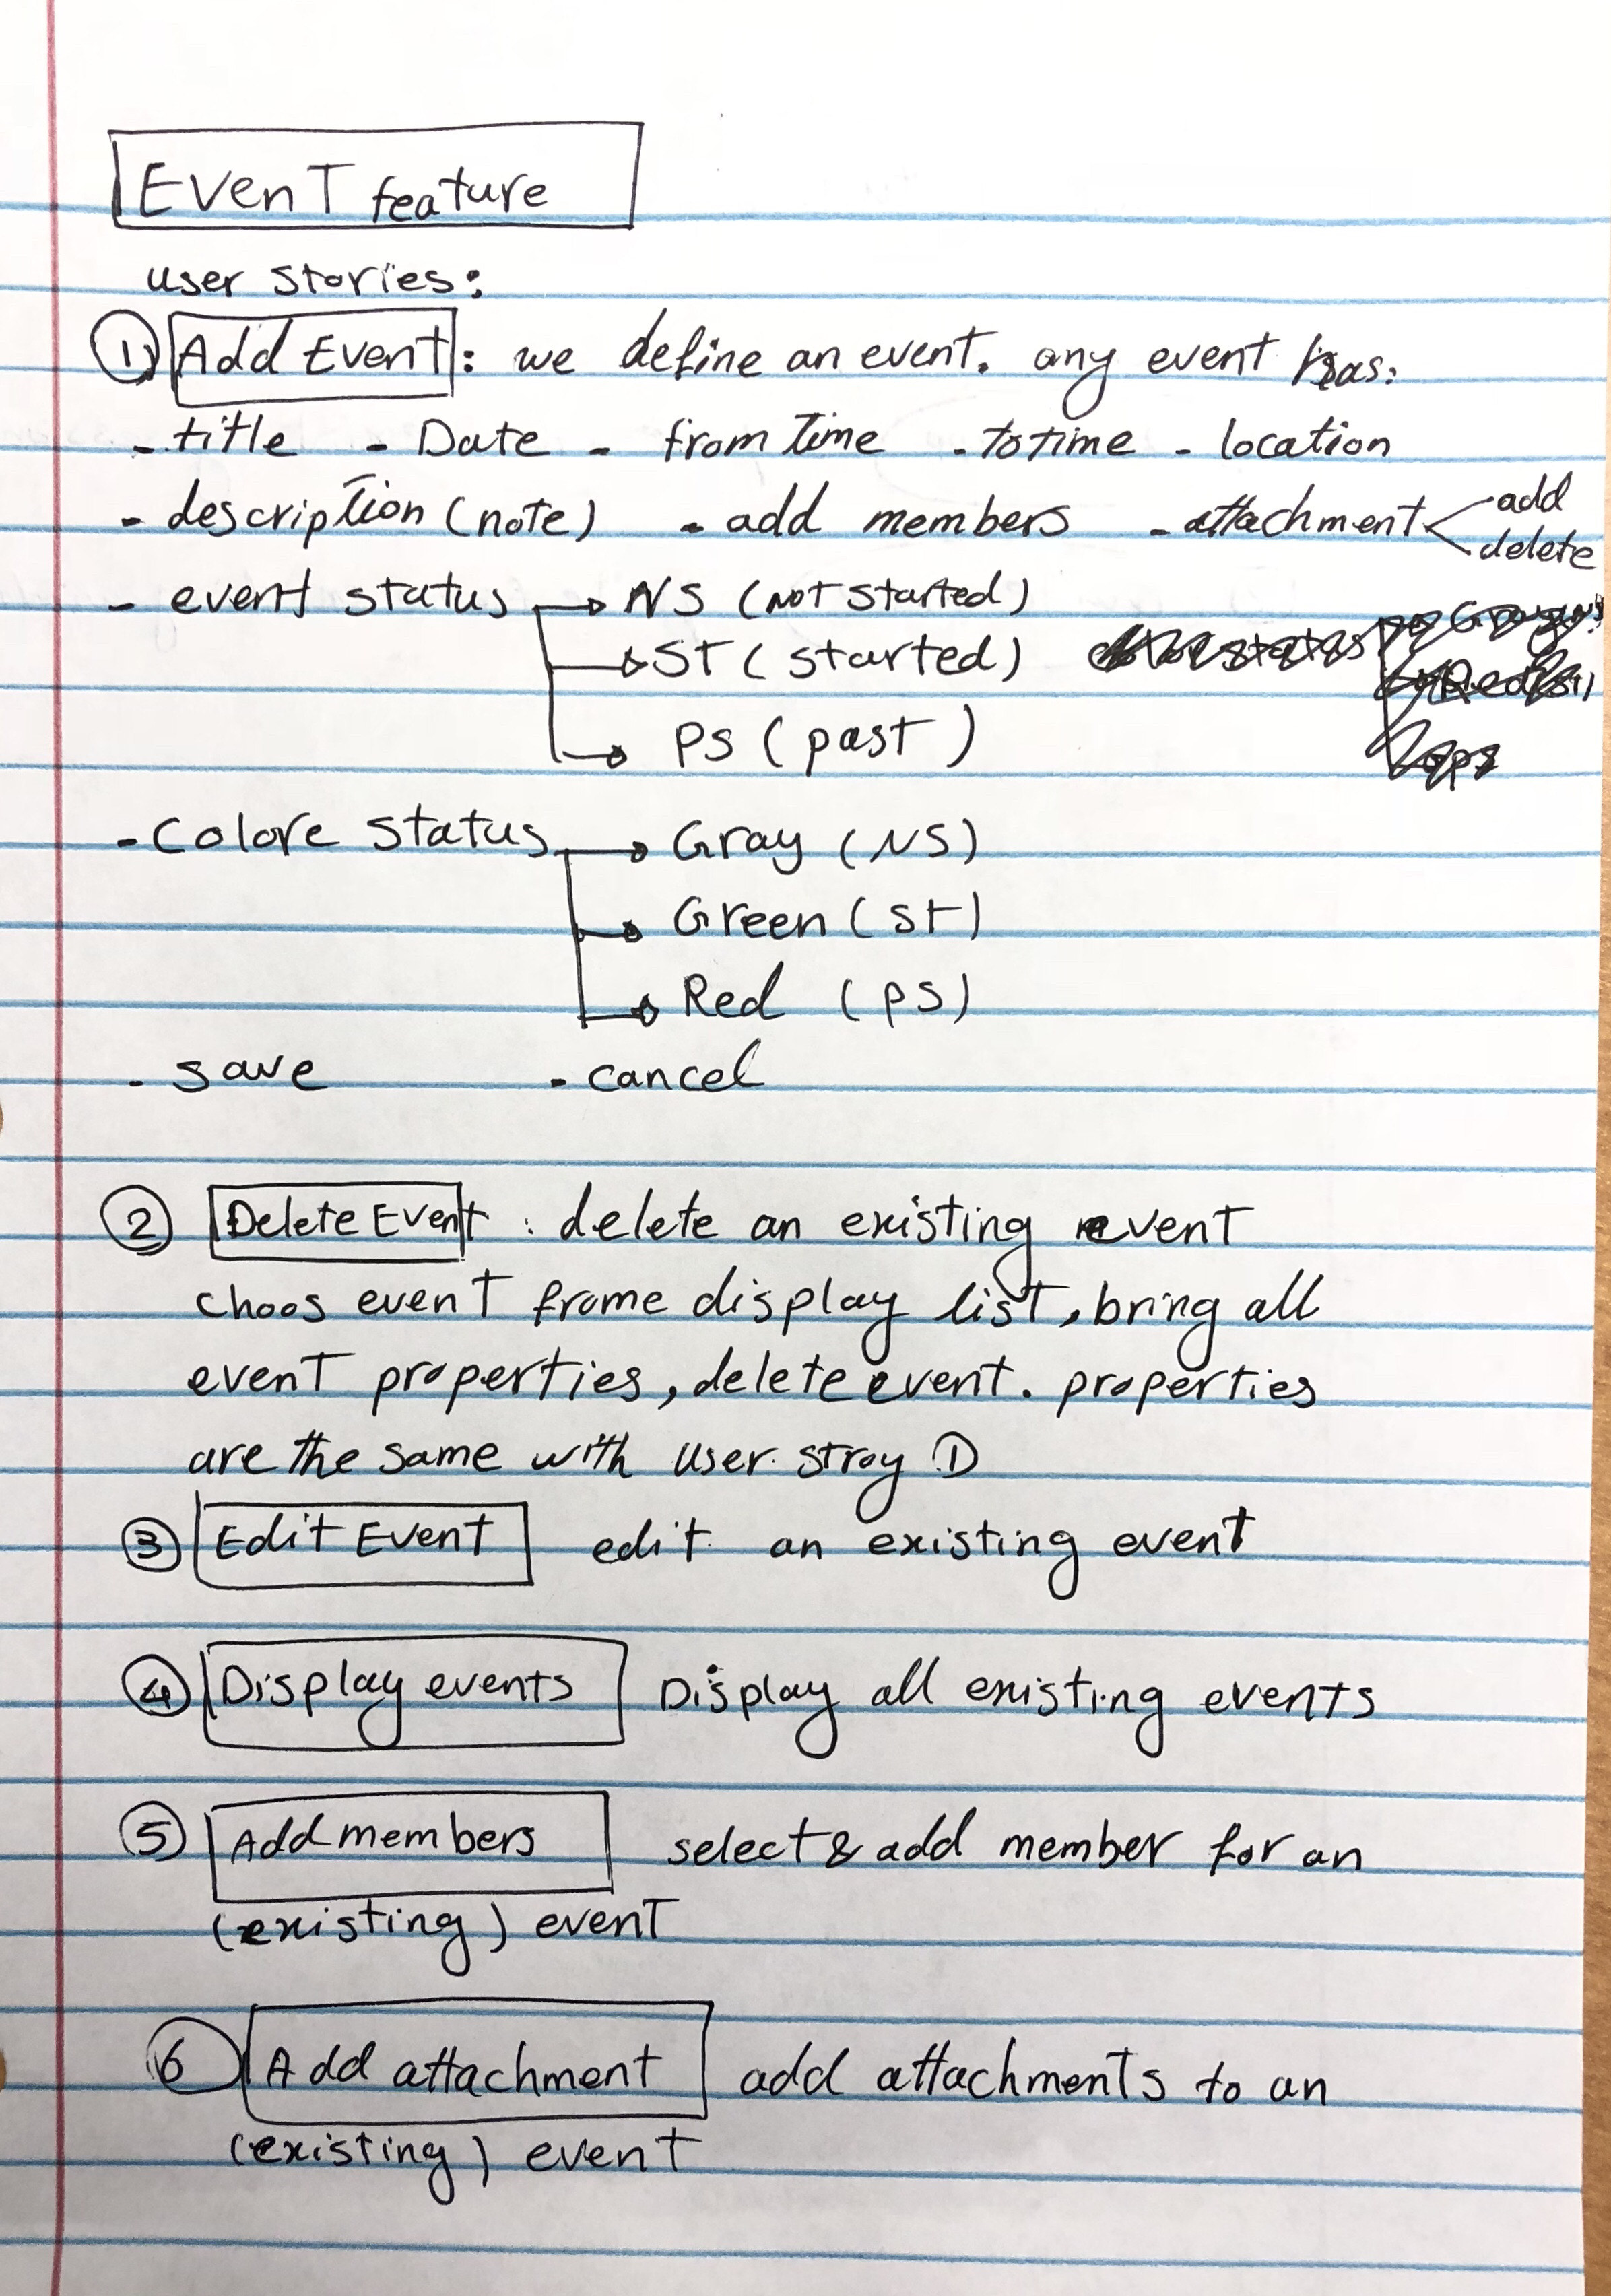 Event feature
user stories:
① Add Event: we define an event. any event has:
- title - Date - from Time - to time - location
- description (note) - add members - attachment add
delete
- event status NS (Not Started)
ST (started)
PS (past)
- Colore status Gray (NS)
Green (ST)
Red (PS)
- save - cancel
② Delete Event : delete an existing event
choos event frome display list, bring all
event properties, delete event. properties
are the same with user stroy ①
③ Edit Event edit an existing event
④ Display events Display all existing events
⑤ Add members select & add member for an
(existing) event
⑥ Add attachment add attachments to an
(existing) event